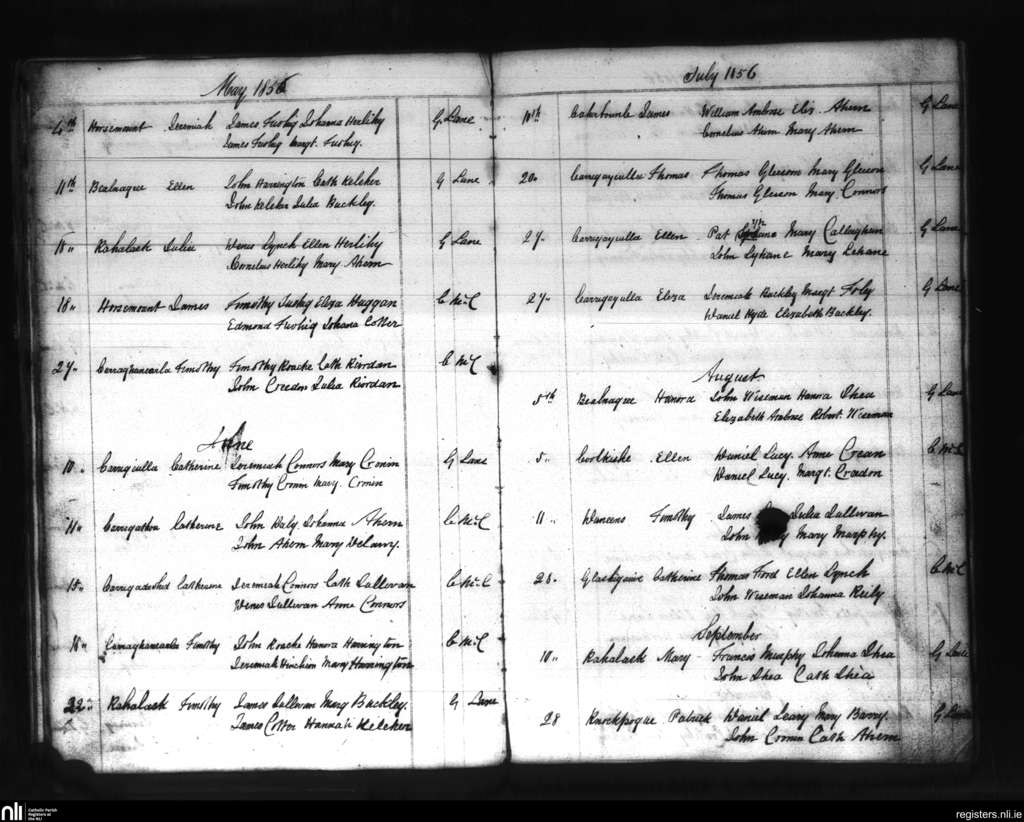 May 1856
4th Horsemount Jeremiah James Tuohig Johanna Herlihy G. Lane
James Tuohig Margt. Tuohig.
11th Bealnagee Ellen John Harrington Cath Keleher G Lane
John Keleher Julia Buckley.
18 " Rahalask Julia Lynch Ellen Herlihy G Lane
Cornelius Herlihy Mary Ahern
18 " Horsemount James Timothy Eliza Huggan C McC
Edmond Johana Cotter
27 " Timothy Timothy Roache Cath Riordan C McC
John Creedon Julia Riordan
June
10 . Catherine Jeremiah Connors Mary Cronin G Lane
Timothy Cronin Mary. Cronin
11 " Carrigathou Catherine John Daly. Johanna Ahern C McC
John Ahern Mary
15 " Catherine Jeremiah Connors Cath Sullivan C McC
Sullivan Anne Connors
16 " Timothy John Roache Hanora Harrington C McC
Jeremiah Hinchion Mary Harrington
22 " Rahalask Timothy James Sullivan Marg Buckley. G Lane
James Cotter Hannah Keleher
July 1856
10th James William Ambrose Eliz. Ahern G Lane
Cornelius Ahern Mary Ahern
20 . Carrigaculla Thomas Thomas Gleeson Mary Gleeson G Lane
Thomas Gleeson Mary. Connors
27 . Carrigaculla Ellen Pat Mary Callaghan G Lane
John Mary Lehane
27 . Carrigaculla Eliza Jeremiah Buckley Margt Foley G Lane
Daniel Hyde Elizabeth Buckley.
August
5th Bealnagee Hanora John Wiseman Hanora Shea G Lane
Elizabeth Ambrose Robert. Wiseman
5 . Ellen Daniel Lucy. Anne Crean C McC
Daniel Lucy. Margt. Creedon
11 " Timothy James Julia Sullivan
John Mary Murphy.
28 . Glashigaire Catherine Thomas Ford Ellen Lynch C McC
John Wiseman Johanna Reily
September
10 " Rahalask Mary - Francis Murphy Johanna Shea G Lane
John Shea Cath Shea
28 Knockpogue Patrick Daniel Leary Mary Barry. G Lane
John Cronin Cath Ahern
nli
Catholic Parish
Registers at
the NLI
registers.nli.ie